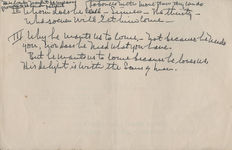 II Whom does he call - sinners - the thirsty -
Whosoever will let him come -
III Why he wants us to come - not because he needs
you, nor does he need what you have.
But he wants us to come because he loves us
His delight is with the sons of men.